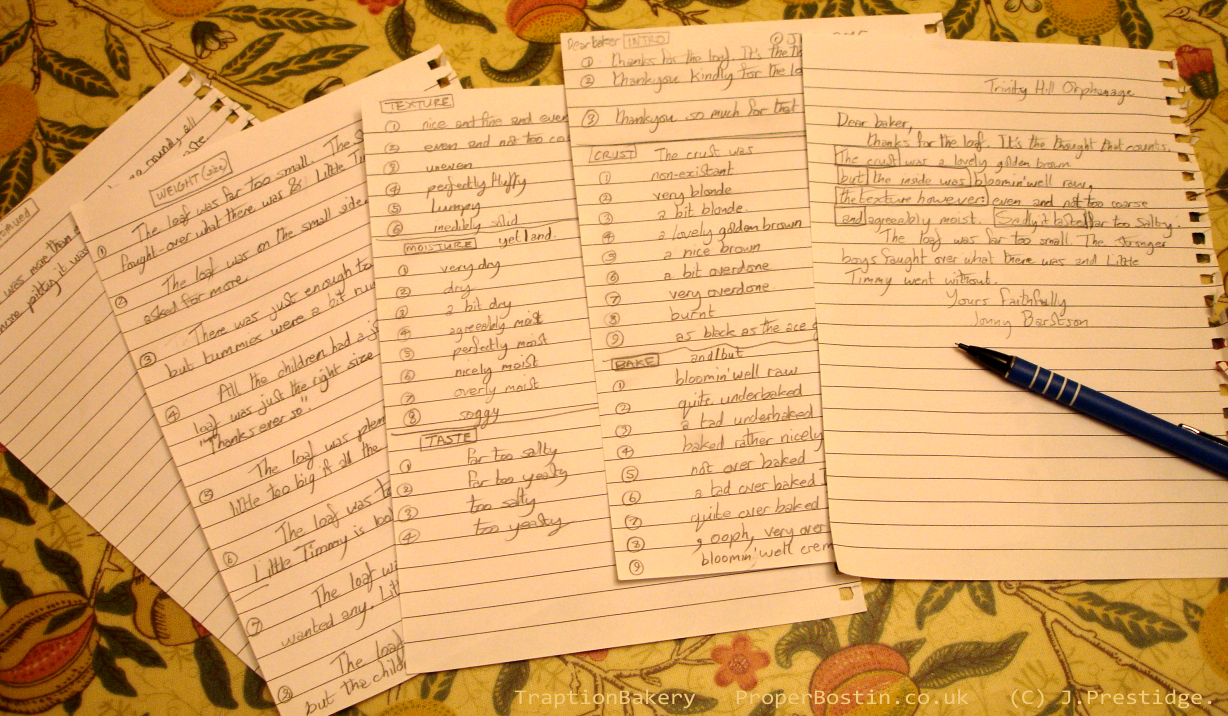 was more than
pitty it was
so roundy, all
WEIGHT
① The loaf was far too small. The S
fought over what there was & Little Ti
② The loaf was on the small side
asked for more.
③ There was just enough to
but tummies were a bit
④ All the children had a
loaf was just the right size
"Thanks ever so".
⑤ The loaf was
little too big if all the
⑥ The loaf was
Little Timmy is
⑦ The loaf
wanted any.
⑧ The loaf
but the child
TEXTURE
① nice and fine and even
② even and not too co
③ uneven
④ perfectly fluffy
⑤ Lumpy
⑥ inedibly solid
MOISTURE yet/and.
① very dry
② dry
③ a bit dry
④ agreeably moist
⑤ perfectly moist
⑥ nicely moist
⑦ overly moist
⑧ soggy
TASTE
① far too salty
② far too yeasty
③ too salty
④ too yeasty
Dear baker INTRO
① thanks for the loaf. It's the
② thankyou kindly for the lo
③ thankyou so much for that
CRUST The crust was
① non-existant
② very blonde
③ a bit blonde
④ a lovely golden brown
⑤ a nice brown
⑥ a bit overdone
⑦ very overdone
⑧ burnt
⑨ as black as the ace
BAKE and/but
① bloomin' well raw
② quite underbaked
③ a tad underbaked
④ baked rather nicely
⑤ not over baked
⑥ a tad over baked
⑦ quite over baked
⑧ , ooph, very over
⑨ bloomin' well crem
Trinity Hill Orphanage
Dear baker,
thanks for the loaf. It's the thought that counts.
The crust was a lovely golden brown
but the inside was bloomin' well raw,
the texture however: even and not too coarse
and agreeably moist. Sadly it tasted far too salty.
The loaf was far too small. The stronger
boys fought over what there was and Little
Timmy went without.
Yours faithfully
Jonny Barstson
TraptionBakery ProperBostin.co.uk (C) J.Prestidge.